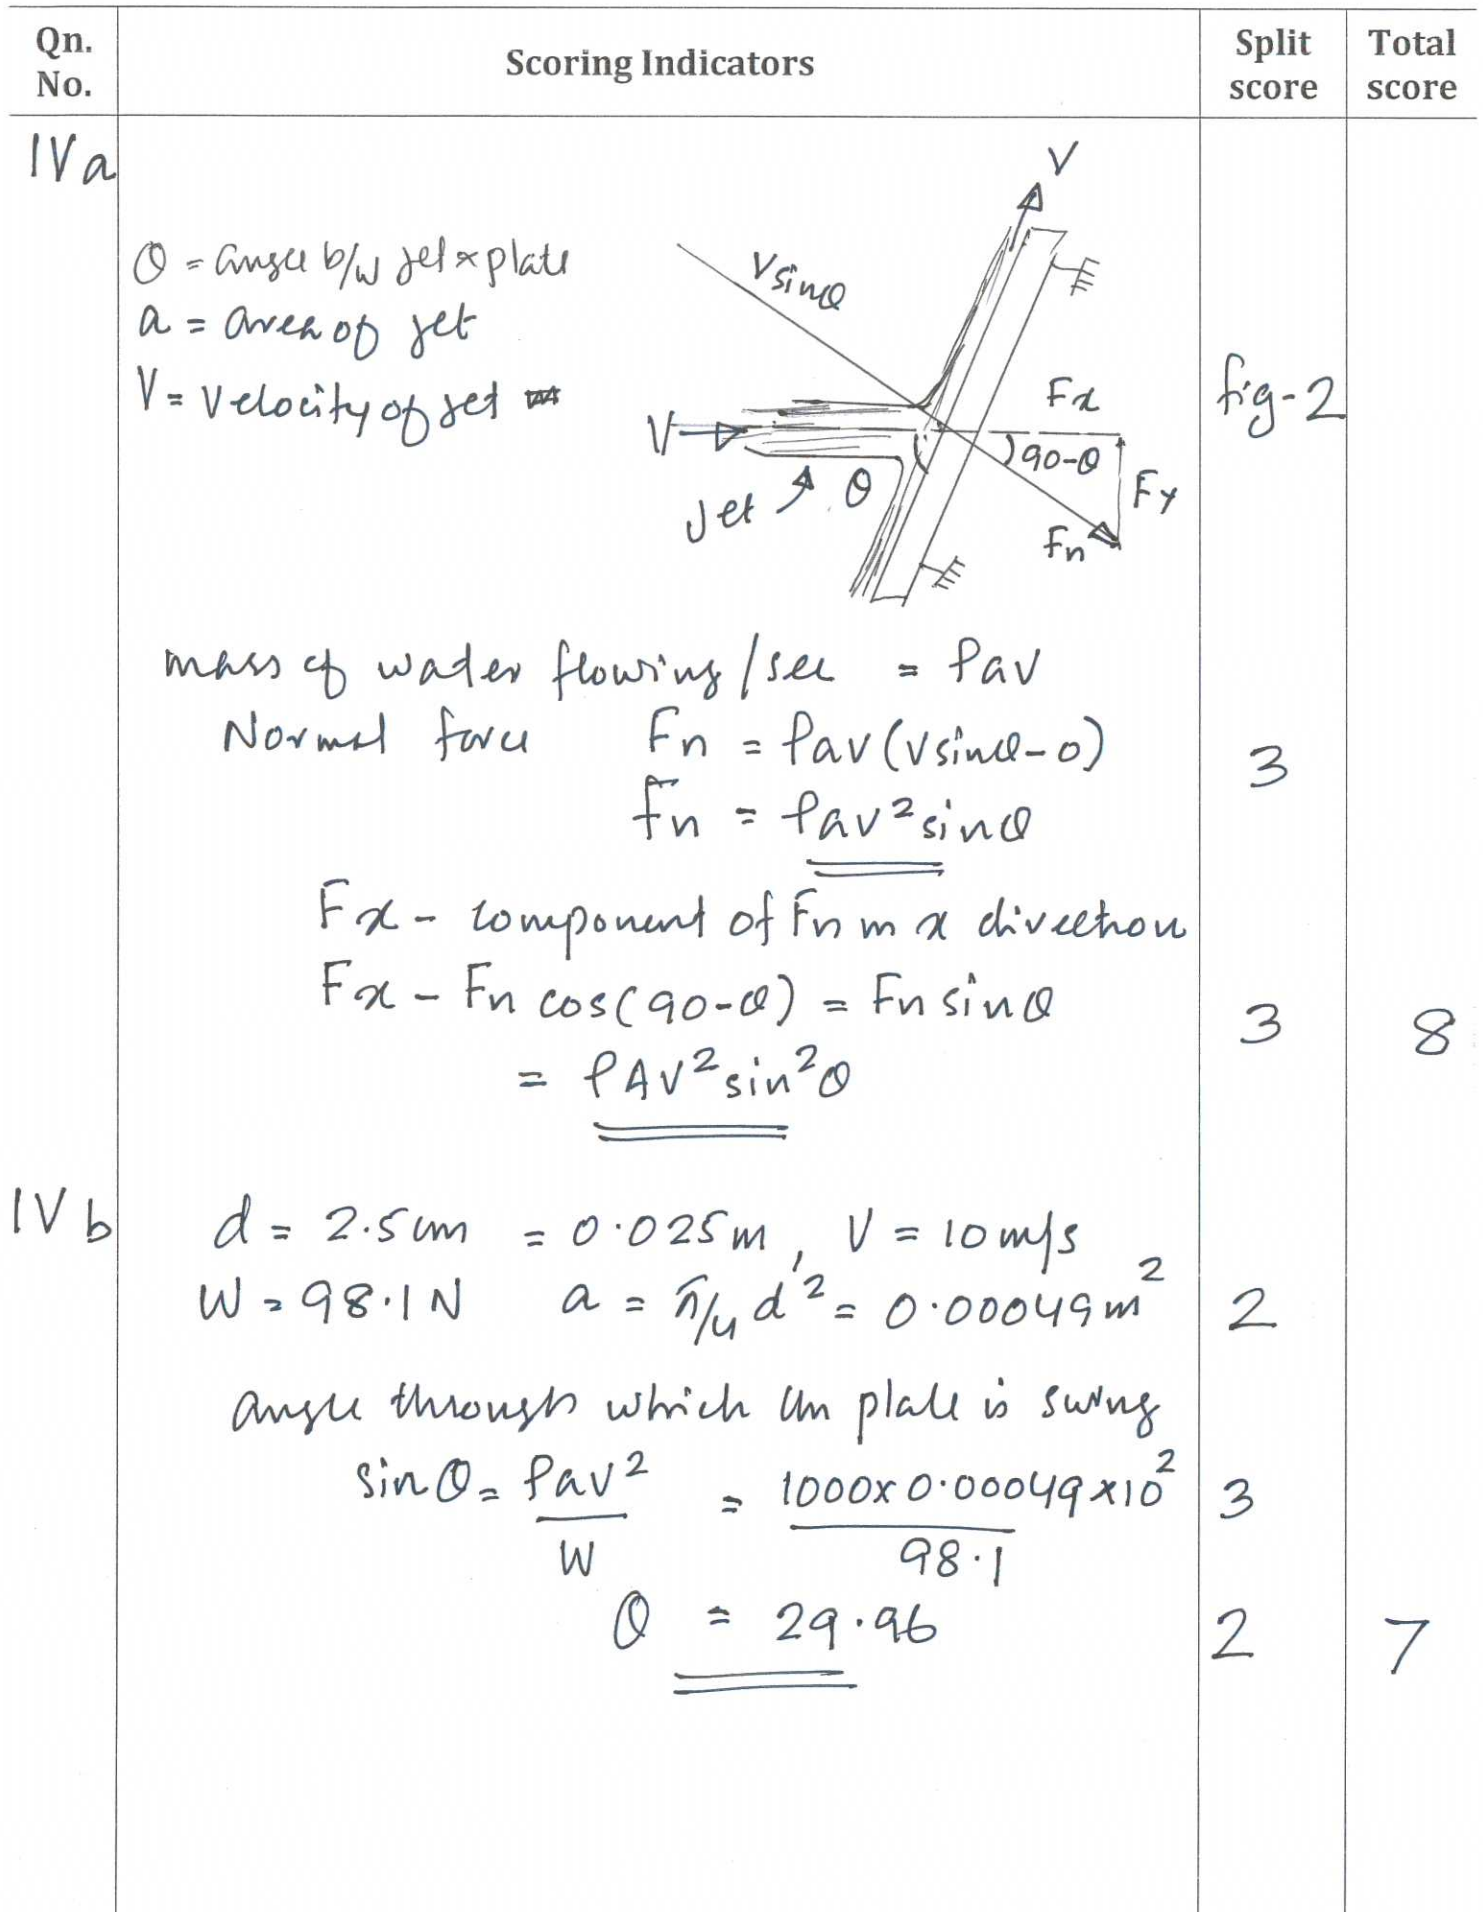 Qn. No.
Scoring Indicators
Split score
Total score
IVa
V
θ = angle b/w jet & plate
a = area of jet
V = Velocity of jet
Vsinθ
V
Jet
θ
Fx
90-θ
Fy
Fn
fig-2
mass of water flowing /sec = ρav
Normal force Fn = ρav(vsinθ-0)
Fn = ρav²sinθ
3
Fx - component of Fn in x direction
Fx - Fn cos(90-θ) = Fn sinθ
= ρAV²sin²θ
3
8
IVb
d = 2.5cm = 0.025m, V = 10m/s
W = 98.1N a = π/4 d² = 0.00049m²
2
angle through which the plate is swing
sinθ = ρav²/W = 1000x0.00049x10²/98.1
3
θ = 29.96
2
7